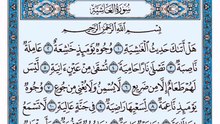 سُورَةُ الْغَاشِيَةِ
بِسْمِ اللَّهِ الرَّحْمَٰنِ الرَّحِيمِ
هَلْ أَتَىٰكَ حَدِيثُ ٱلْغَٰشِيَةِ ١ وُجُوهٌ يَوْمَئِذٍ خَٰشِعَةٌ ٢ عَامِلَةٌ
نَّاصِبَةٌ ٣ تَصْلَىٰ نَارًا حَامِيَةً ٤ تُسْقَىٰ مِنْ عَيْنٍ ءَانِيَةٍ ٥ لَّيْسَ
لَهُمْ طَعَامٌ إِلَّا مِن ضَرِيعٍ ٦ لَّا يُسْمِنُ وَلَا يُغْنِى مِن جُوعٍ ٧
وُجُوهٌ يَوْمَئِذٍ نَّاعِمَةٌ ٨ لِّسَعْيِهَا رَاضِيَةٌ ٩ فِى جَنَّةٍ عَالِيَةٍ ١٠ لَّا تَسْمَعُ